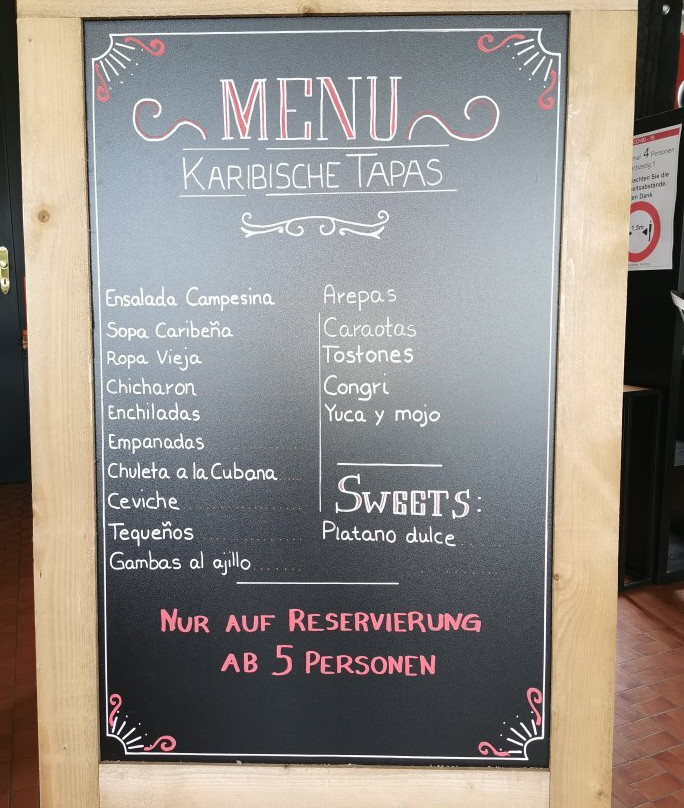 MENU
KARIBISCHE TAPAS
Ensalada Campesina
Sopa Caribeña
Ropa Vieja
Chicharon
Enchiladas
Empanadas
Chuleta a la Cubana
Ceviche
Tequeños
Gambas al ajillo
Arepas
Caraotas
Tostones
Congri
Yuca y mojo
SWEETS:
Platano dulce
NUR AUF RESERVIERUNG
AB 5 PERSONEN
4 Personen
Sie die
Dank
1.5m